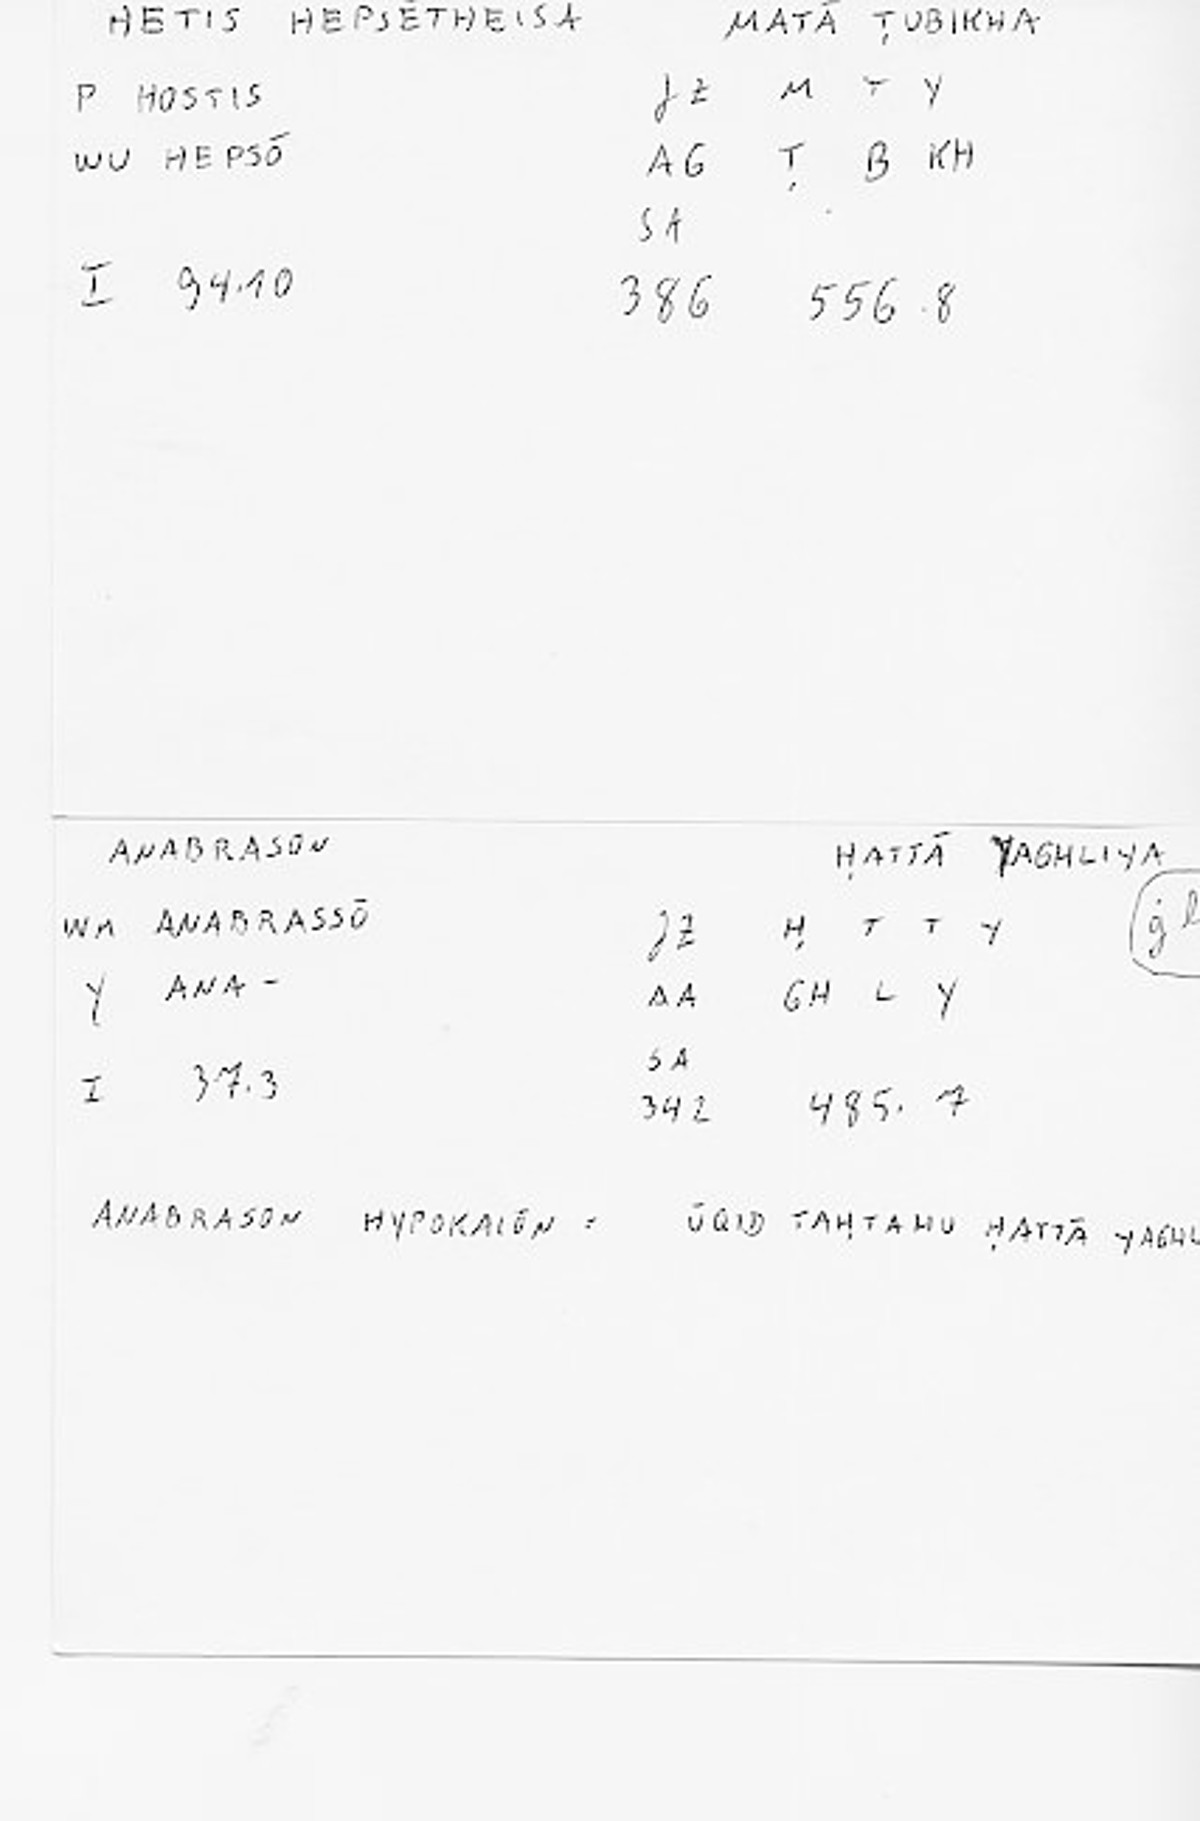 HĒTIS HEPSĒTHEISA MATĀ ṬUBIKHA
P HOSTIS JZ M T Y
WU HEPSŌ AG Ṭ B KH
SA
I 94.10 386 556.8
ANABRASŌN ḤATTĀ YAGHLIYA
WM ANABRASSŌ JZ Ḥ T T Y ġl
Y ANA- AA GH L Y
SA
I 37.3 342 485.7
ANABRASŌN HYPOKAIŌN = ŪQID TAḤTAHU ḤATTĀ YAGHL